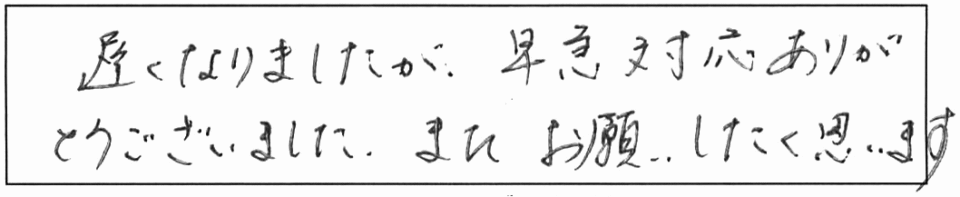 遅くなりましたが、早急対応ありが
とうございました。またお願いしたく思います